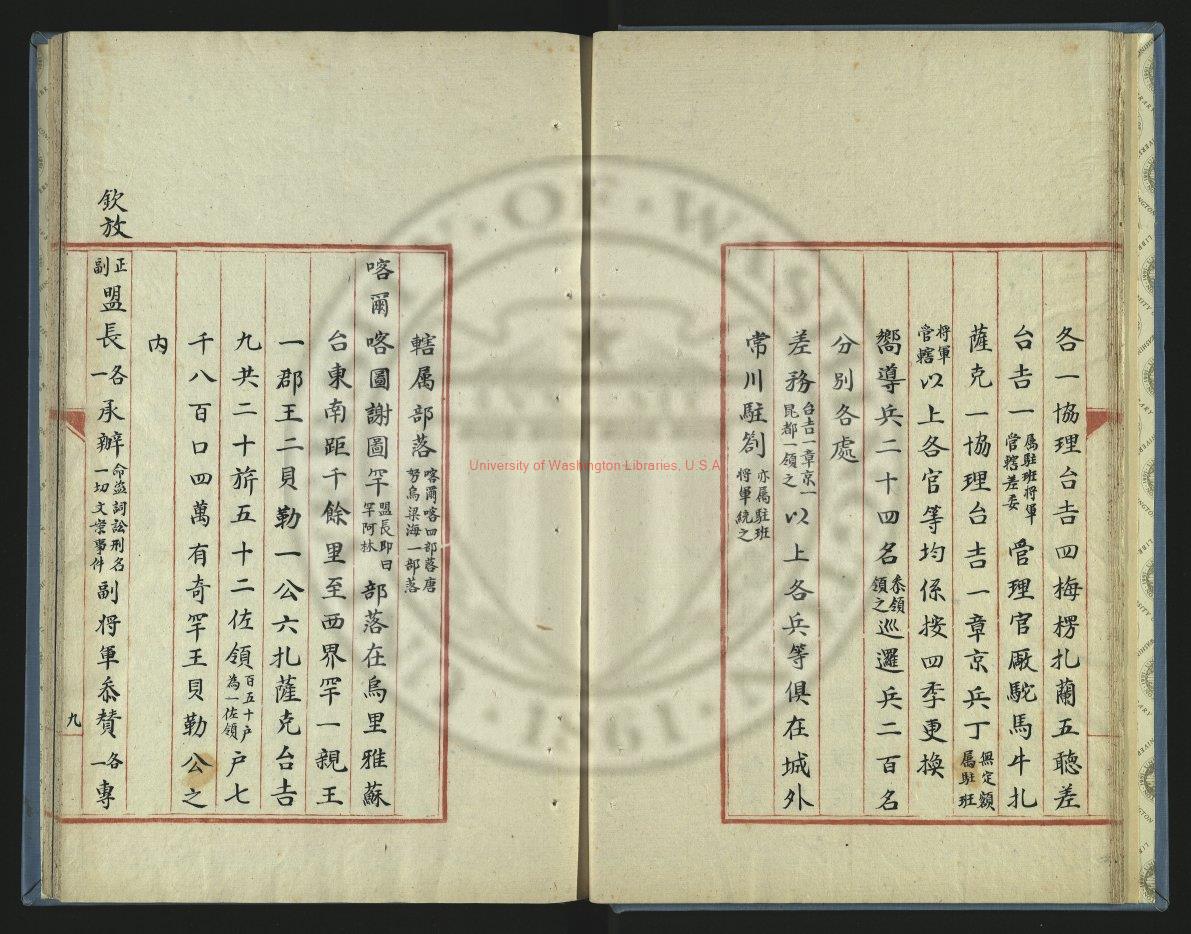 各一協理台吉四梅楞扎蘭五聽差
台吉一屬駐班将軍管轄差委管理官厰駝馬牛扎
薩克一協理台吉一章京兵丁無定額屬駐班
将軍管轄以上各官等均係按四季更換
嚮導兵二十四名叅領領之巡邏兵二百名
分別各處
差務台吉一章京一昆都一領之以上各兵等俱在城外
常川駐劄亦属駐班将軍統之
轄属部落喀爾喀四部落唐努烏梁海一部落
喀爾喀圖謝圖罕盟長即曰罕阿林部落在烏里雅蘇
台東南距千餘里至西界罕一親王
一郡王二貝勒一公六扎薩克台吉
九共二十旂五十二佐領百五十户為一佐領户七
千八百口四萬有奇罕王貝勒公之
内
欽放
正副盟長各一承辦命盜詞訟刑名一切文案事件副将軍叅賛各一專
九
University of Washington Libraries, U.S.A.